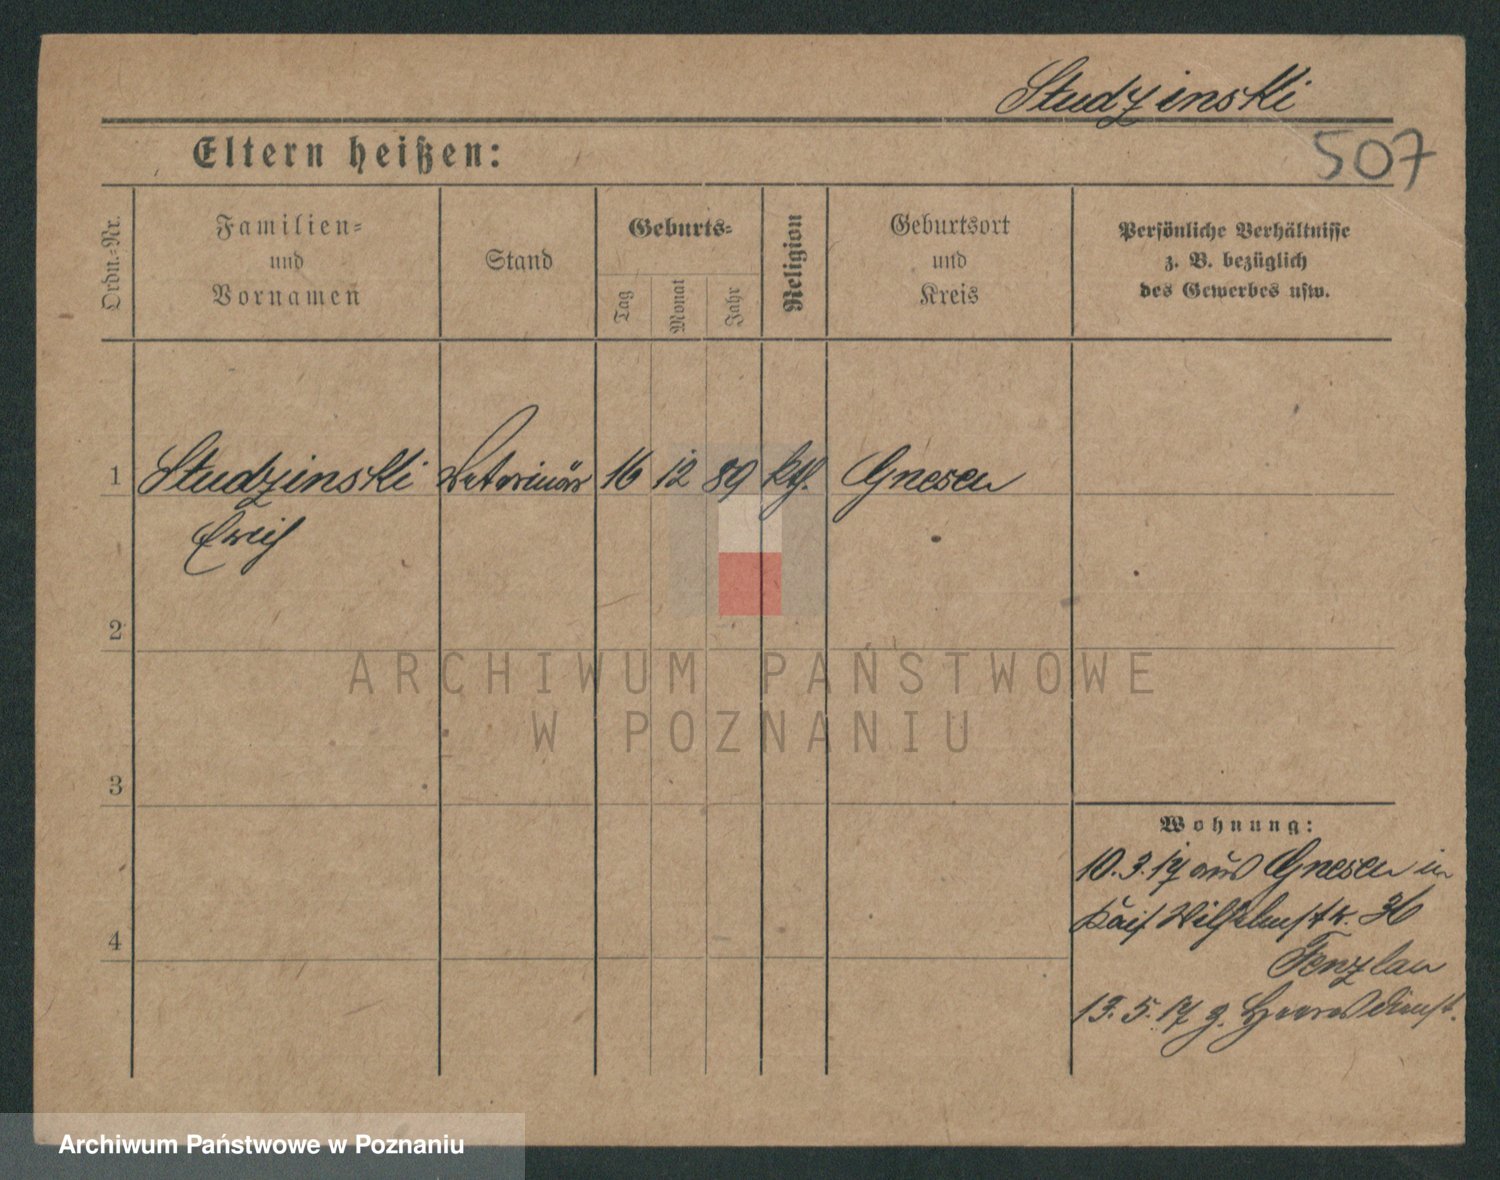 Studzinski
507
Eltern heißen:
Ordn.=Nr.
Familien=
und
Vornamen
Stand
Geburts=
Tag
Monat
Jahr
Religion
Geburtsort
und
Kreis
Persönliche Verhältnisse
z. B. bezüglich
des Gewerbes usw.
1 Studzinski Veterinär 16 12 89 kth. Gnesen
Erich
2
3
4
Wohnung:
10.3.17 aus Gnesen in
Kais Wilhelmstr. 36
Tenzlau
13.5.17 z. Heeresdienst.
ARCHIWUM PAŃSTWOWE
W POZNANIU
Archiwum Państwowe w Poznaniu